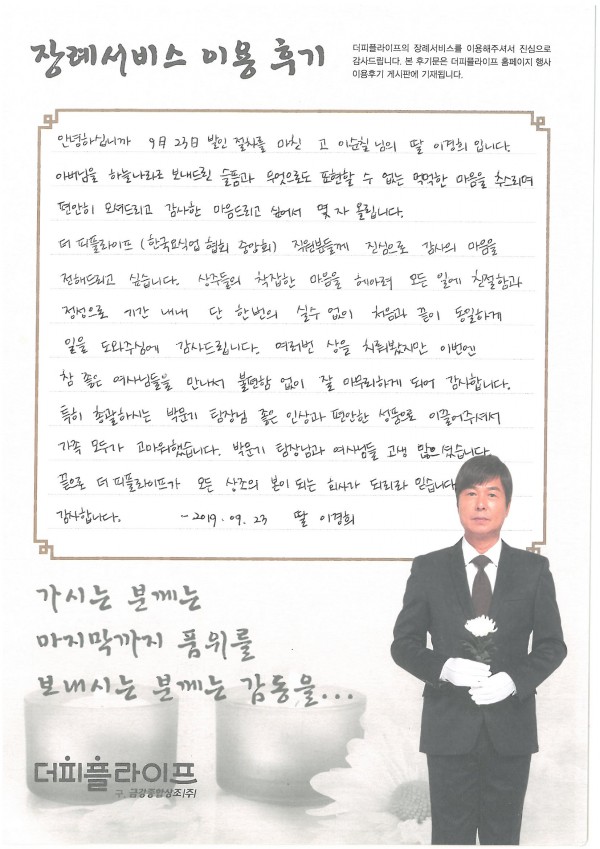 장례서비스 이용 후기
더피플라이프의 장례서비스를 이용해주셔서 진심으로
감사드립니다. 본 후기문은 더피플라이프 홈페이지 행사
이용후기 게시판에 기재됩니다.
안녕하십니까 9월 23일 발인 절차를 마친 고 이순칠 님의 딸 이경희 입니다.
아버님을 하늘나라로 보내드린 슬픔과 무엇으로도 표현할 수 없는 먹먹한 마음을 추스리며
편안히 모셔드리고 감사한 마음드리고 싶어서 몇 자 올립니다.
더 피플라이프 (한국요식업 협회 중앙회) 직원분들께 진심으로 감사의 마음을
전해드리고 싶습니다. 상주들의 착잡한 마음을 헤아려 모든 일에 친절함과
정성으로 기간 내내 단 한번의 실수 없이 처음과 끝이 동일하게
일을 도와주심에 감사드립니다. 여러번 상을 치뤄봤지만 이번엔
참 좋은 여사님들을 만나서 불편함 없이 잘 마무리하게 되어 감사합니다.
특히 총괄하시는 박문기 팀장님 좋은 인상과 편안한 성품으로 이끌어주셔서
가족 모두가 고마워했습니다. 박문기 팀장님과 여사님들 고생 많으셨습니다.
끝으로 더 피플라이프가 모든 상조의 본이 되는 회사가 되리라 믿습니다
감사합니다. -2019.09.23 딸 이경희
가시는 분께는
마지막까지 품위를
보내시는 분께는 감동을...
더피플라이프
구. 금강종합상조(주)